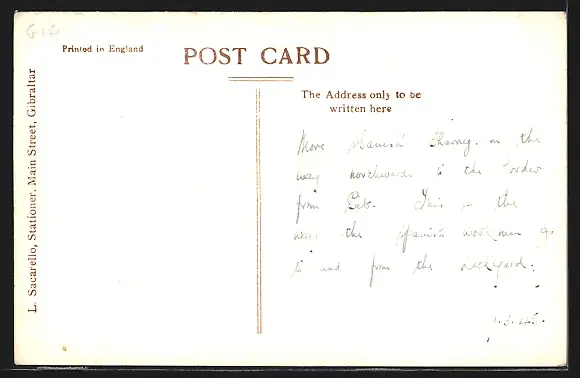 GIB
Printed in England
POST CARD
L. Sacarello, Stationer, Main Street, Gibraltar
The Address only to be
written here
More Spanish on the
way northwards to the Border
from Gib. This is the
way the Spanish workmen go
to and from the Dockyard.